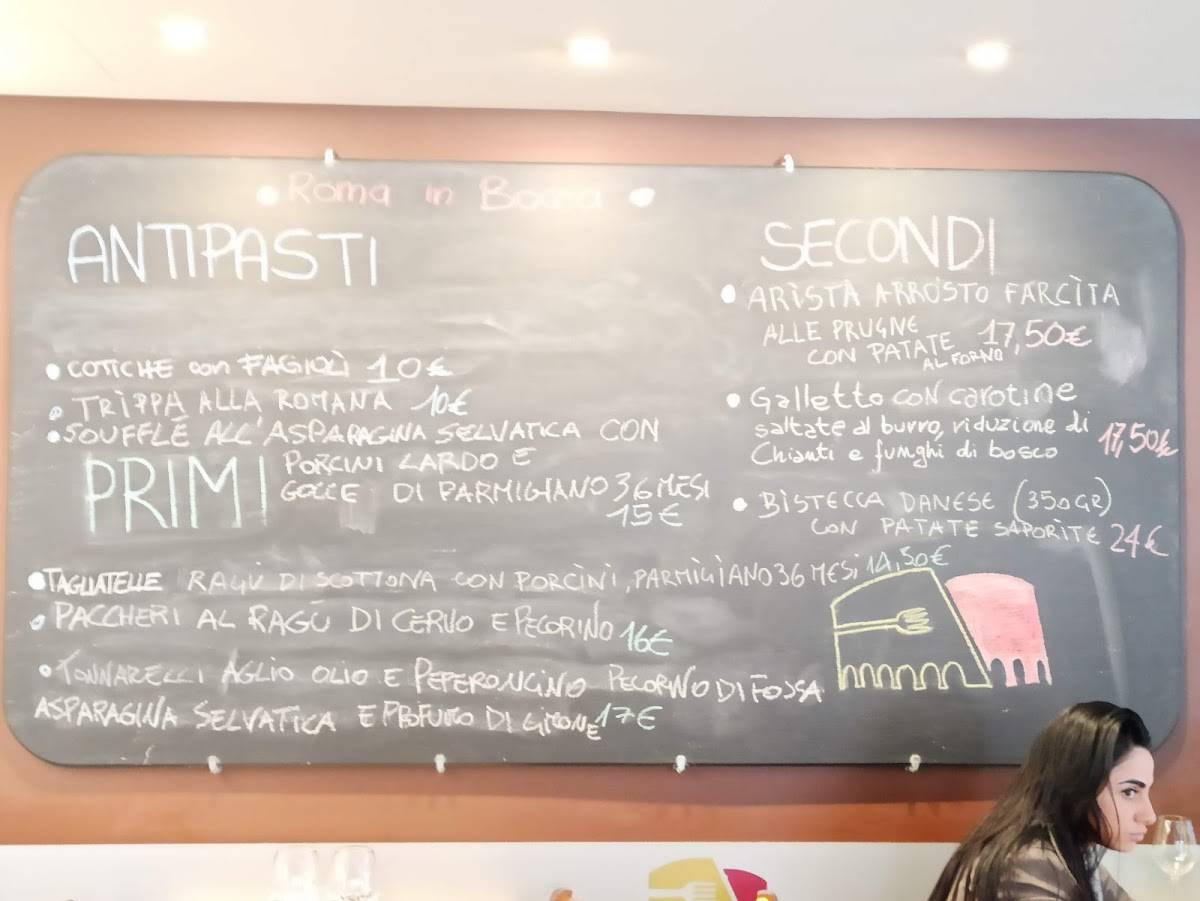 Roma in Bocca
ANTIPASTI
COTICHE con FAGIOLÌ 10€
TRÌPPA ALLA ROMANA 10€
SOUFFLÈ ALL'ASPARAGINA SELVATICA CON
PORCINI LARDO E
GOCCE DI PARMIGIANO 36 MESI
15€
PRIMI
TAGLIATELLE RAGÙ DI SCOTTONA CON PORCÌNÌ, PARMÌGÌANO 36 MESÌ 14,50€
PACCHERI AL RAGÙ DI CERVO E PECORINO 16€
TONNARELLI AGLIO OLIO E PEPERONCINO PECORINO DI FOSSA
ASPARAGINA SELVATICA E PROFUMO DI LIMONE 17€
SECONDI
ARÌSTA ARROSTO FARCÌTA
ALLE PRUGNE
CON PATATE AL FORNO 17,50€
Galletto con carotine
saltate al burro, riduzione di
Chianti e funghi di bosco 17,50€
BÌSTECCA DANESE (350GR)
CON PATATE SAPORÌTE 24€